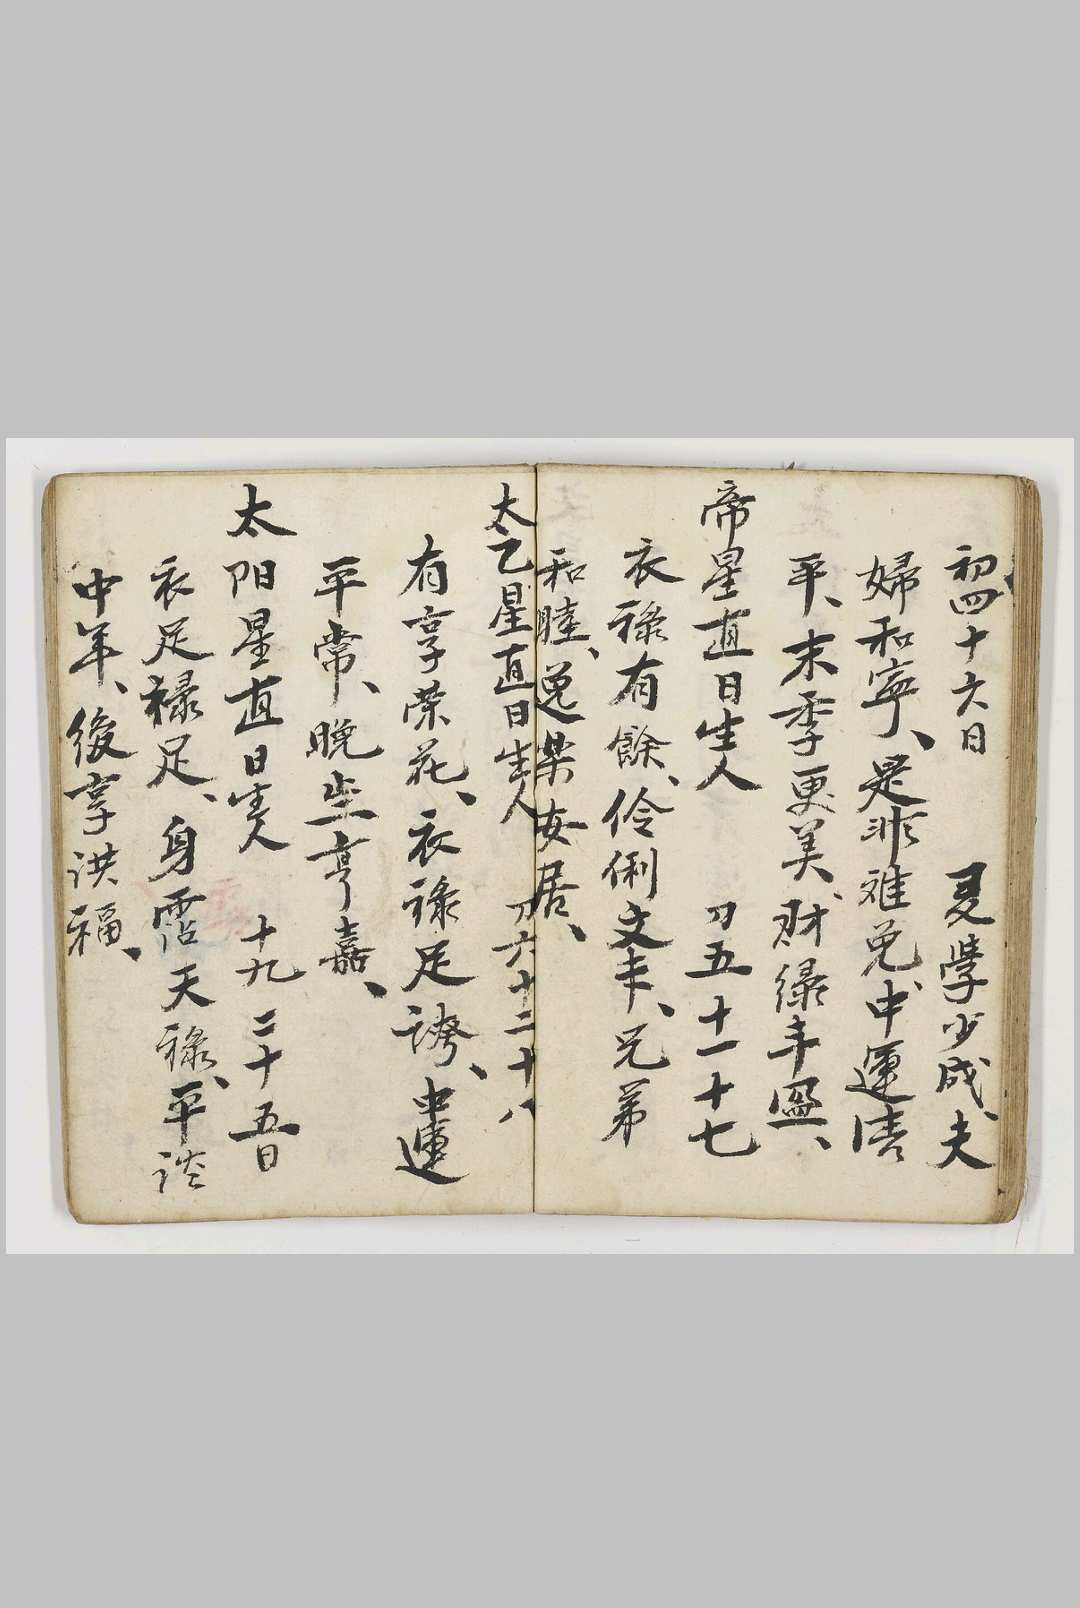 初四十六日　夏學少成、夫
婦和寧、是非难免、中運清
平、末季更美、财緑丰盈、
帝星直日生人　刀五十一十七
衣祿有餘、伶俐文丰、兄弟
和睦、逸楽安居、
太乙星直日生人　刀六十二十八
有享荣花、衣祿足誇、中運
平常、晚坐亨嘉、
太阳星直日生人　十九二十五日
衣足禄足、身霑天祿、平淡
中年、後享洪福、